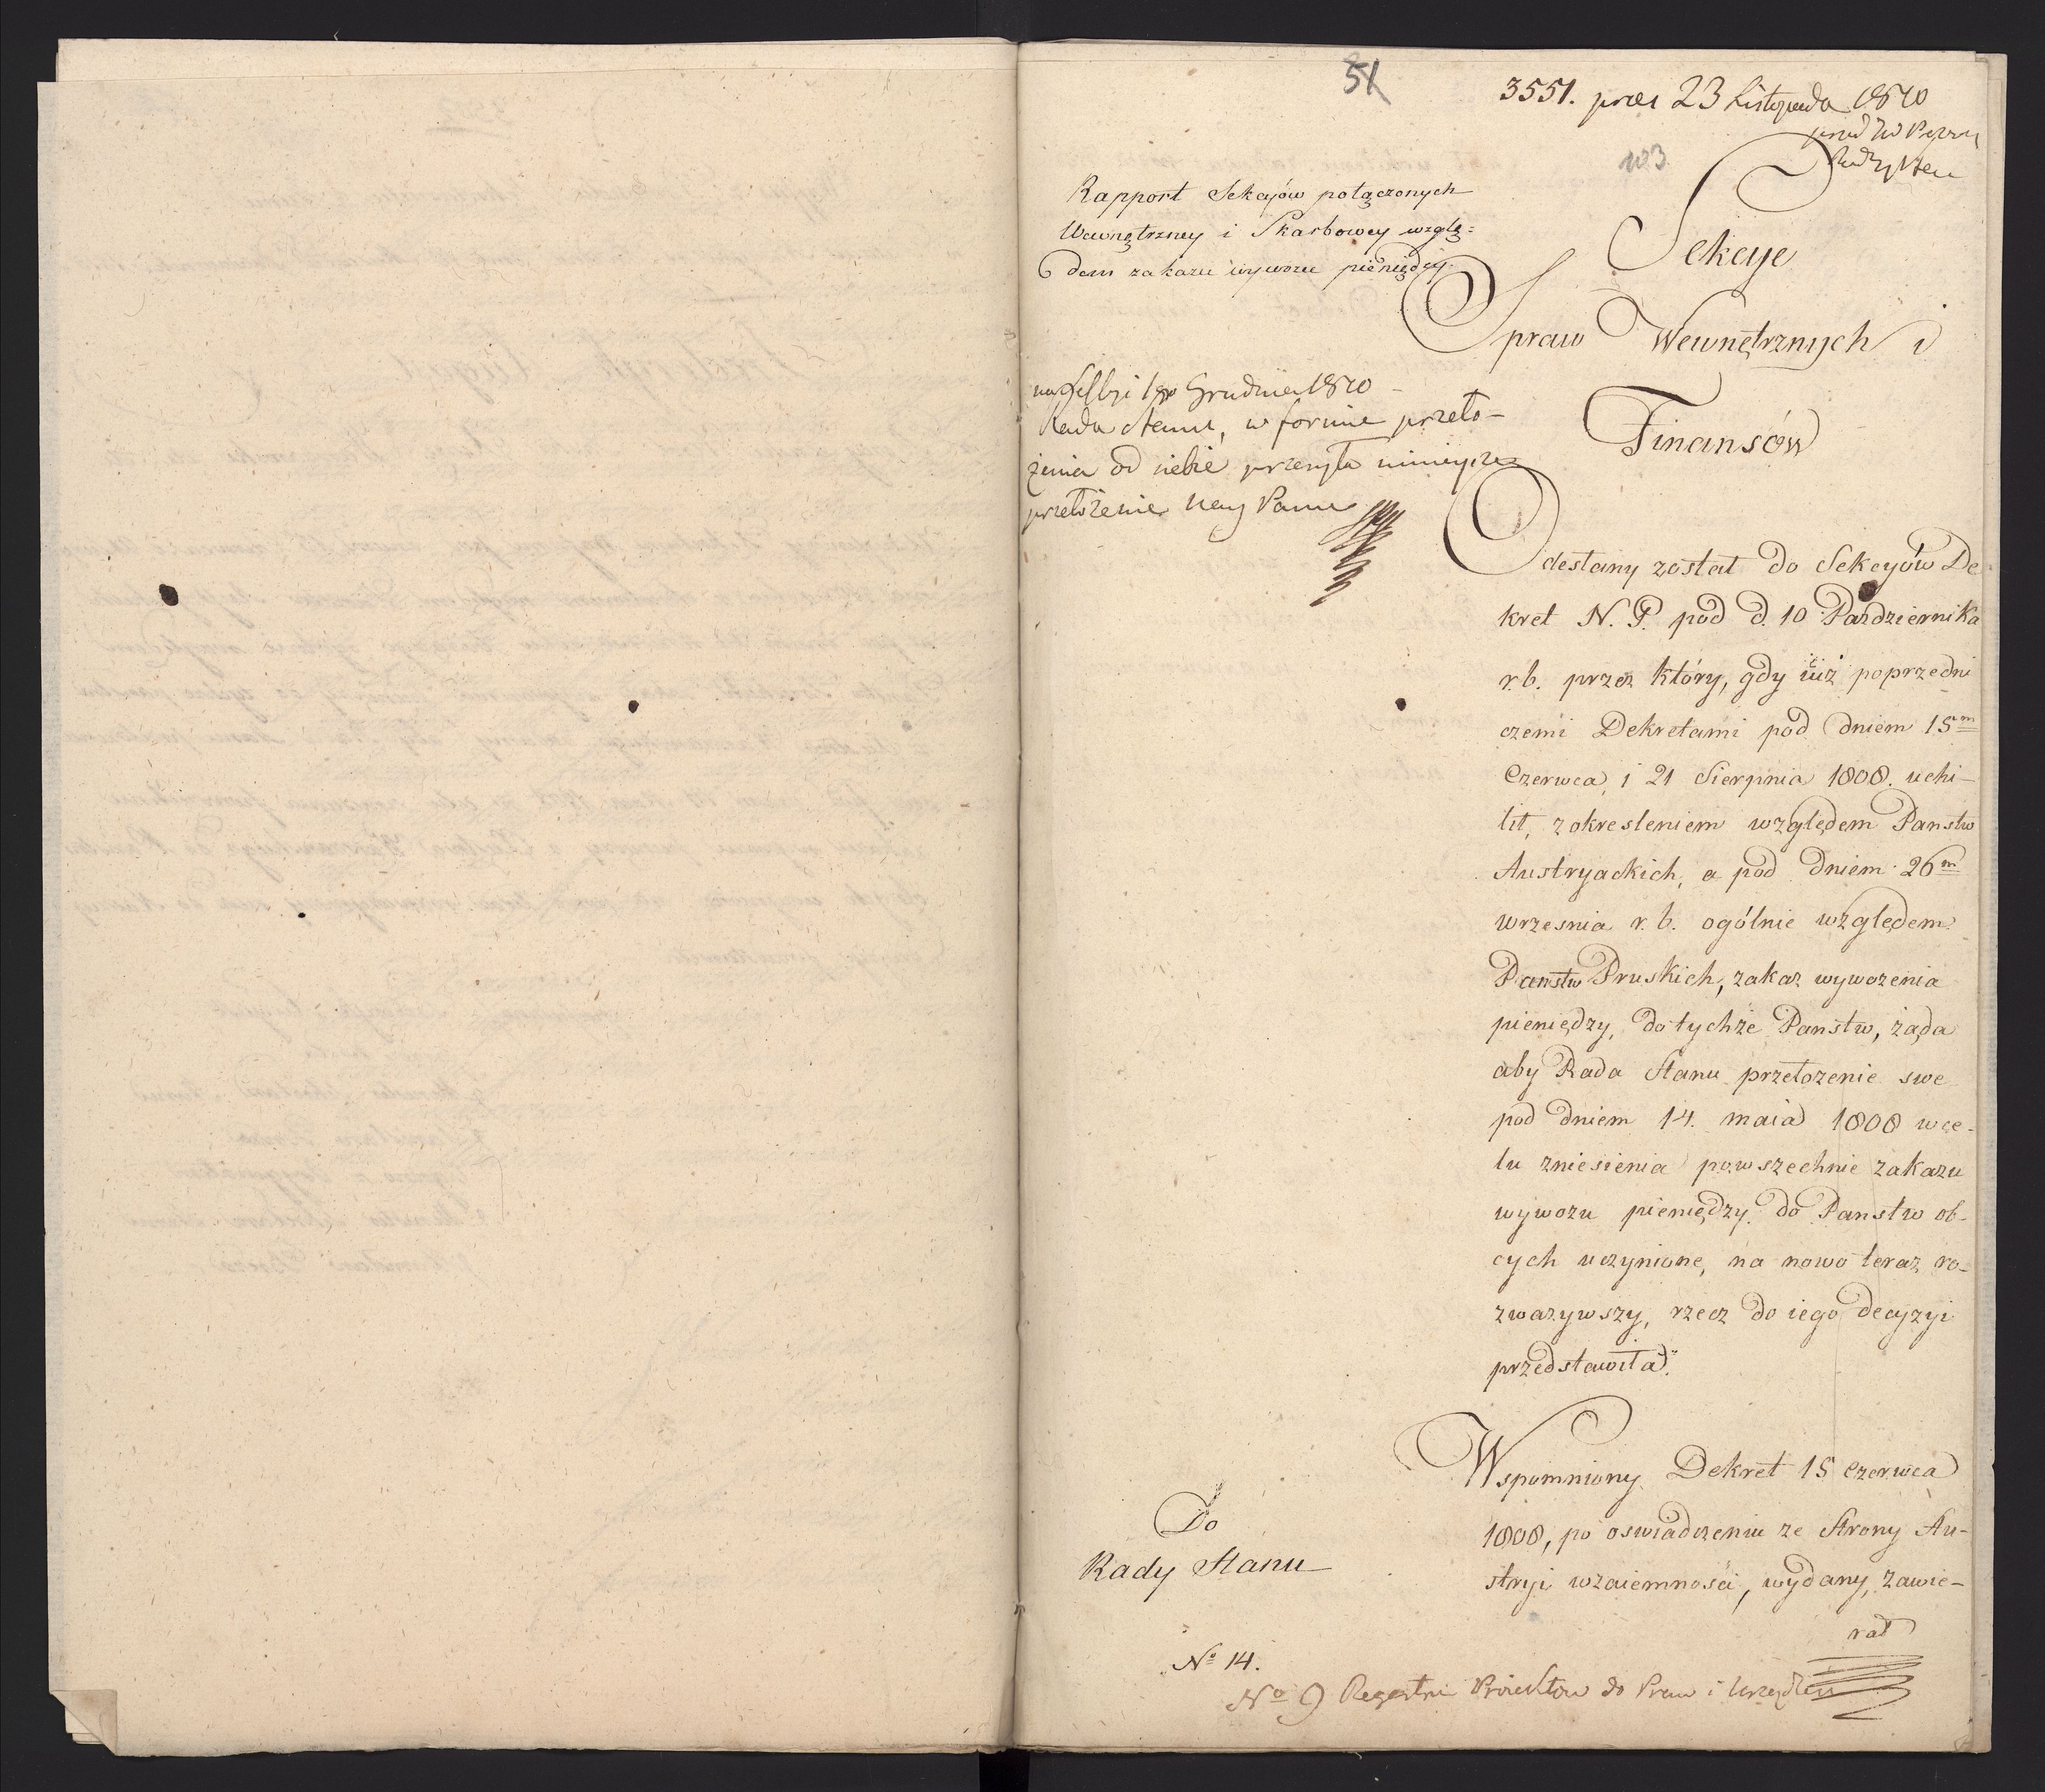 51
3551. præs 23 Listopada 1810
103
Rapport Sekcyów połączonych
Wewnętrzney i Skarbowey wzglę=
dem zakazu wywozu pieniędzy.
Sekcye
Spraw Wewnętrznych i
Finansów
na Sessyi 1go Grudnia 1810
Rada Stanu, w formie przeło-
żenia od siebie przesyła ninieysze
przełożenie Nay Panu
Odesłany został do Sekcyów De
kret N. P. pod d. 10 Pazdziernika
r.b. przez który, gdy iuż poprzedni
czemi Dekretami pod dniem 15m
Czerwca, i 21 Sierpnia 1808. uchi-
lił, z okresleniem względem Panstw
Austryackich, a pod dniem 26m
wrzesnia r. b. ogólnie względem
Panstw Pruskich, zakaz wywozenia
pieniędzy, do tychże Panstw, żąda
aby Rada Stanu przełozenie swe
pod dniem 14. maia 1808 w ce-
lu zniesienia powszechnie zakazu
wywozu pieniędzy do Panstw ob-
cych uczynione, na nowo teraz ro-
zwazywszy, rzecz do iego decyzyi
przedstawiła.
Wspomniony Dekret 15 Czerwca
1808, po oswiadczeniu ze Strony Au-
stryi wzaiemnosci, wydany, zawie-
rał
Do
Rady Stanu
No 14.
No 9 Regestru Proiektow do Praw i Urządzeń